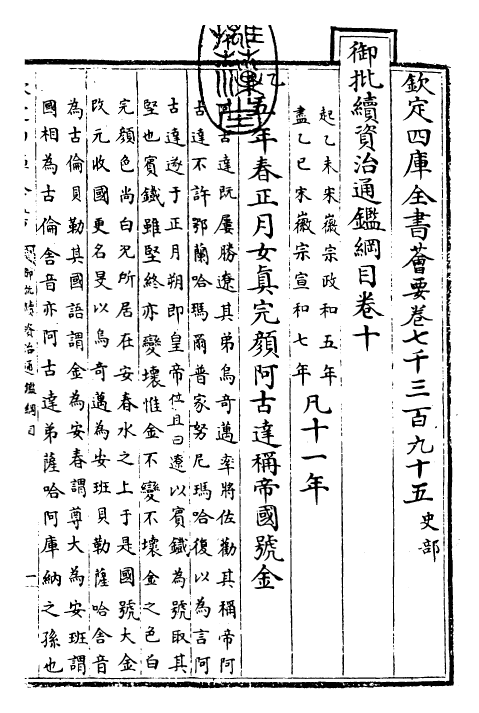 欽定四庫全書薈要卷七千三百九十五 史部
御批續資治通鑑綱目卷十
起乙未宋徽宗政和五年
盡乙巳宋徽宗宣和七年 凡十一年
乙未五年春正月女真完顏阿古達稱帝國號金
阿古達既屢勝遼其弟烏奇邁率將佐勸其稱帝阿
古達不許鄂蘭哈瑪爾普家努尼瑪哈復以為言阿
古達遂于正月朔即皇帝位且曰遼以賓鐵為號取其
堅也賓鐵雖堅終亦變壞惟金不變不壞金之色白
完顏色尚白況所居在安春水之上于是國號大金
改元收國更名旻以烏奇邁為安班貝勒薩哈舍音
為古倫貝勒其國語謂金為安春謂尊大為安班謂
國相為古倫舍音亦阿古達弟薩哈阿庫納之孫也
御批續資治通鑑綱目
一